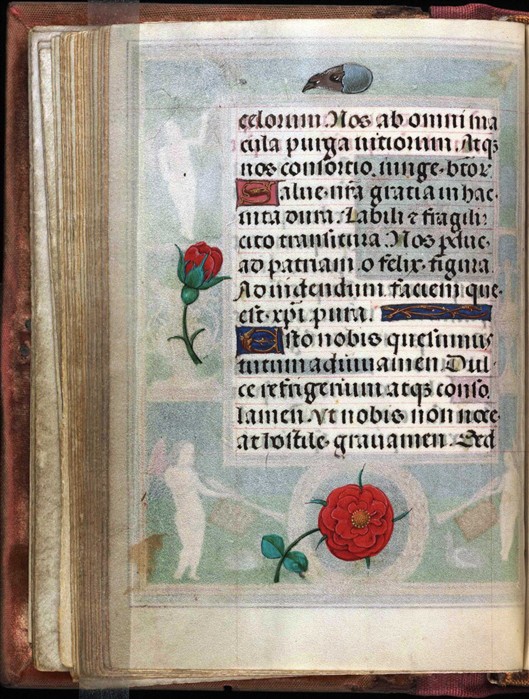 celorum. Nos ab omni ma
cula purga vitiorum. Atqꝫ
nos consortio. iunge. btōr
Salue. nr̄a gratia in hac.
vita dura. Labili ⁊ fragili:
cito transitura. Nos p̱duc.
ad patriam. o felix. figura.
Ad videndum. faciem que.
est. xp̄i pura.
Esto nobis quesumus
tutum adiuuamen. Dul
ce refrigerium atqꝫ conso
lamen. Vt nobis non noce
at hostile. grauamen. Sed